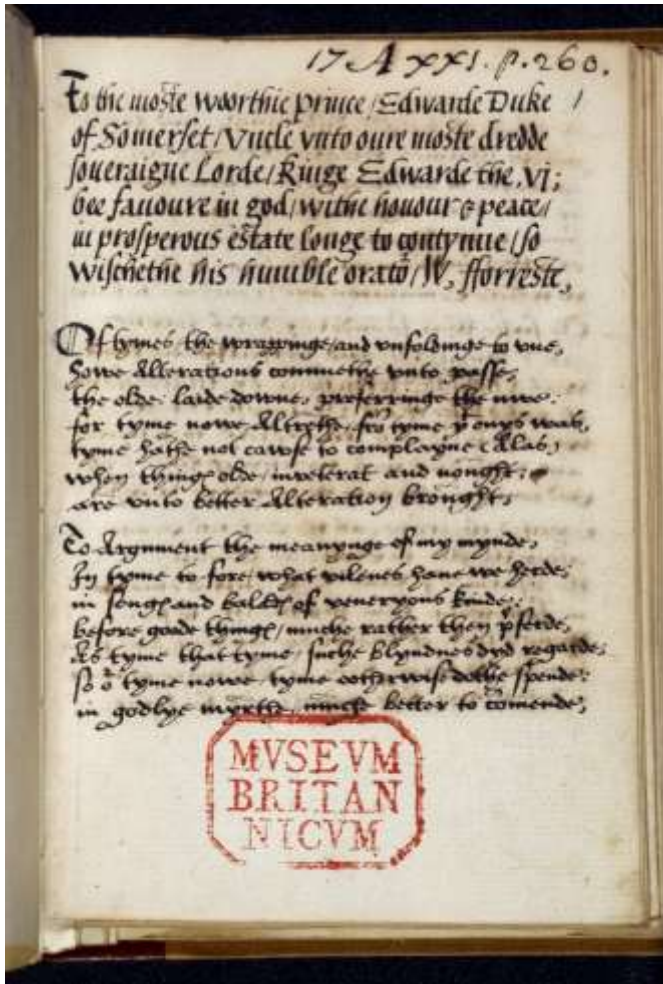 17 A xxi. p. 260.
To the moste woorthie prince / Edwarde Duke 1
of Somerset / Vncle vnto oure moste dredde
soueraigne Lorde / Kinge Edwarde the .vj;
bee fauoure in god / withe honour & peace /
in prosperous estate longe to contynue / so
wischethe his humble orato r̃ / W, fforreste,
Of tymes the wrappinge / and vnfoldinge to vue,
howe Alterations commethe vnto passe,
the olde / laide downe / preferringe the nwe:
for tyme nowe Altrethe / fro tyme yͭ onys was,
tyme hathe not cawse to complayne (Alas)
when thingꝭ olde / inveterat and nought:
are vnto better Alteration brought;
To Argument the meanynge of my mynde,
In tyme to fore / what vilenes haue we herde,
in songꝭ and balletꝭ of veneryous kinde:
before goode thingꝭ / muche rather then p̱ferde,
As tyme that tyme / suche blyndnes dyd regarde:
so oͬ tyme nowe / tyme ootherwise dothe spende:
in godlye myrthe / muche better to cõmende,
MVSEVM
BRITAN
NICVM